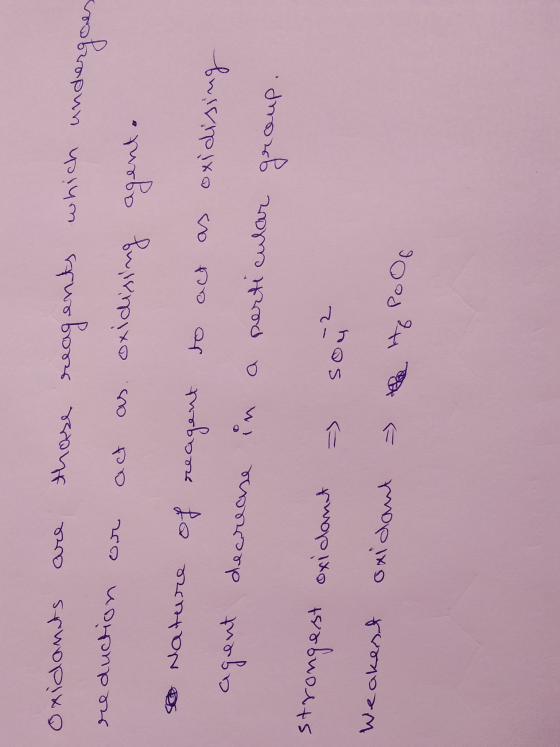 Oxidants are those reagents which undergoes
reduction or act as oxidising agent.
Nature of reagent to act as oxidising
agent decrease in a perticular group.
Strongest oxidant => SO4^-2
Weakest oxidant => H6PoO6